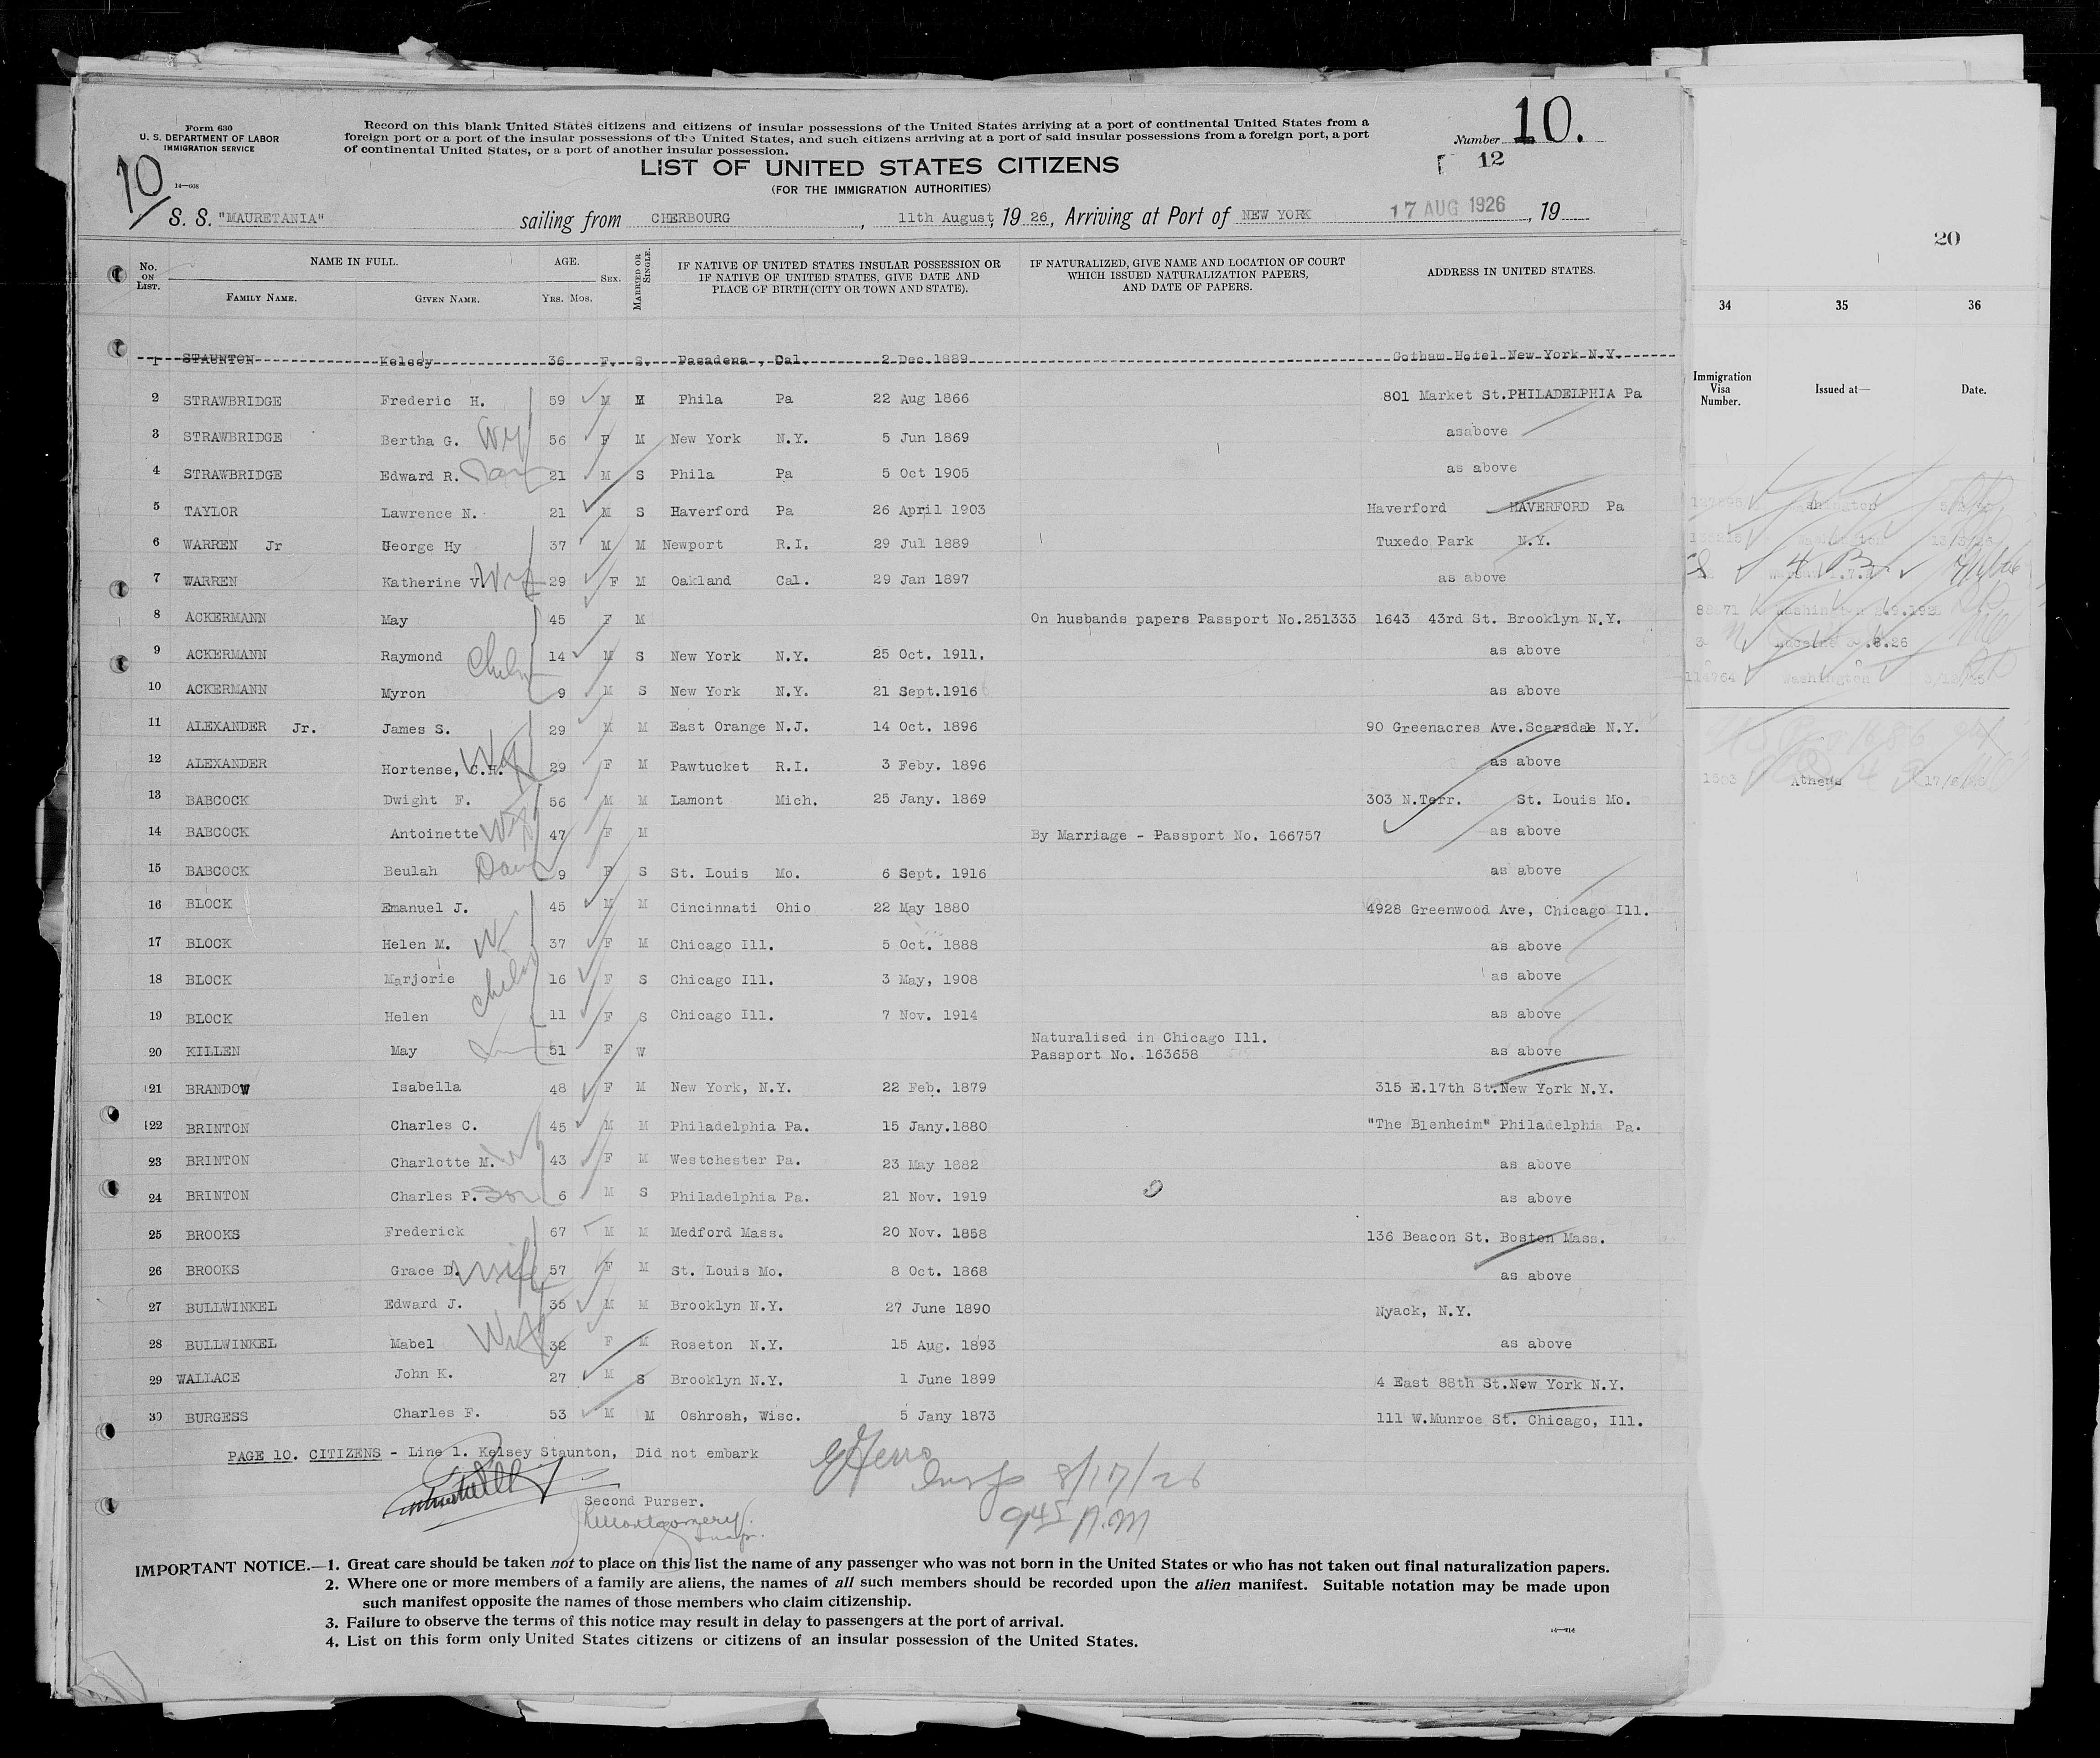 Form 630
U. S. DEPARTMENT OF LABOR
IMMIGRATION SERVICE
14—608
10
Record on this blank United States citizens and citizens of insular possessions of the United States arriving at a port of continental United States from a
foreign port or a port of the insular possessions of the United States, and such citizens arriving at a port of said insular possessions from a foreign port, a port
of continental United States, or a port of another insular possession.
Number 10.
12
LIST OF UNITED STATES CITIZENS
(FOR THE IMMIGRATION AUTHORITIES)
S. S. "MAURETANIA" sailing from CHERBOURG, 11th August, 19 26, Arriving at Port of NEW YORK 17 AUG 1926, 19
No. ON LIST. NAME IN FULL. FAMILY NAME. GIVEN NAME. AGE. YRS. MOS. SEX. MARRIED OR SINGLE. IF NATIVE OF UNITED STATES INSULAR POSSESSION OR IF NATIVE OF UNITED STATES, GIVE DATE AND PLACE OF BIRTH (CITY OR TOWN AND STATE). IF NATURALIZED, GIVE NAME AND LOCATION OF COURT WHICH ISSUED NATURALIZATION PAPERS, AND DATE OF PAPERS. ADDRESS IN UNITED STATES.
1 STAUNTON Kelsey 36 F. S. Pasadena, Cal. 2 Dec.1889 Gotham Hotel New York N.Y.
2 STRAWBRIDGE Frederic H. 59 M M Phila Pa 22 Aug 1866 801 Market St.PHILADELPHIA Pa
3 STRAWBRIDGE Bertha G. 56 F M New York N.Y. 5 Jun 1869 asabove
4 STRAWBRIDGE Edward R. 21 M S Phila Pa 5 Oct 1905 as above
5 TAYLOR Lawrence N. 21 M S Haverford Pa 26 April 1903 Haverford HAVERFORD Pa
6 WARREN Jr George Hy 37 M M Newport R.I. 29 Jul 1889 Tuxedo Park N.Y.
7 WARREN Katherine V. 29 F M Oakland Cal. 29 Jan 1897 as above
8 ACKERMANN May 45 F M On husbands papers Passport No.251333 1643 43rd St. Brooklyn N.Y.
9 ACKERMANN Raymond 14 M S New York N.Y. 25 Oct. 1911. as above
10 ACKERMANN Myron 9 M S New York N.Y. 21 Sept.1916 as above
11 ALEXANDER Jr. James S. 29 M M East Orange N.J. 14 Oct. 1896 90 Greenacres Ave.Scarsdale N.Y.
12 ALEXANDER Hortense, C.H. 29 F M Pawtucket R.I. 3 Feby. 1896 as above
13 BABCOCK Dwight F. 56 M M Lamont Mich. 25 Jany. 1869 303 N.Terr. St. Louis Mo.
14 BABCOCK Antoinette 47 F M By Marriage - Passport No. 166757 as above
15 BABCOCK Beulah 9 F S St. Louis Mo. 6 Sept. 1916 as above
16 BLOCK Emanuel J. 45 M M Cincinnati Ohio 22 May 1880 4928 Greenwood Ave, Chicago Ill.
17 BLOCK Helen M. W 37 F M Chicago Ill. 5 Oct. 1888 as above
18 BLOCK Marjorie 16 F S Chicago Ill. 3 May, 1908 as above
19 BLOCK Helen 11 F S Chicago Ill. 7 Nov. 1914 as above
20 KILLEN May 51 F W Naturalised in Chicago Ill. Passport No. 163658 as above
21 BRANDOW Isabella 48 F M New York, N.Y. 22 Feb. 1879 315 E.17th St.New York N.Y.
22 BRINTON Charles C. 45 M M Philadelphia Pa. 15 Jany.1880 "The Blenheim" Philadelphia Pa.
23 BRINTON Charlotte M. 43 F M Westchester Pa. 23 May 1882 as above
24 BRINTON Charles P. Son 6 M S Philadelphia Pa. 21 Nov. 1919 as above
25 BROOKS Frederick 67 M M Medford Mass. 20 Nov. 1858 136 Beacon St. Boston Mass.
26 BROOKS Grace D. Wife 57 F M St. Louis Mo. 8 Oct. 1868 as above
27 BULLWINKEL Edward J. 35 M M Brooklyn N.Y. 27 June 1890 Nyack, N.Y.
28 BULLWINKEL Mabel 32 F M Roseton N.Y. 15 Aug. 1893 as above
29 WALLACE John K. 27 M S Brooklyn N.Y. 1 June 1899 4 East 88th St.New York N.Y.
30 BURGESS Charles F. 53 M M Oshrosh, Wisc. 5 Jany 1873 111 W.Munroe St. Chicago, Ill.
PAGE 10. CITIZENS - Line 1. Kelsey Staunton, Did not embark
8/17/26
945 A.M
Second Purser.
Montgomery
IMPORTANT NOTICE.—1. Great care should be taken not to place on this list the name of any passenger who was not born in the United States or who has not taken out final naturalization papers.
2. Where one or more members of a family are aliens, the names of all such members should be recorded upon the alien manifest. Suitable notation may be made upon
such manifest opposite the names of those members who claim citizenship.
3. Failure to observe the terms of this notice may result in delay to passengers at the port of arrival.
4. List on this form only United States citizens or citizens of an insular possession of the United States.
20
34 35 36
Immigration Visa Number. Issued at— Date.
Washington
Washington
Washington
Athens